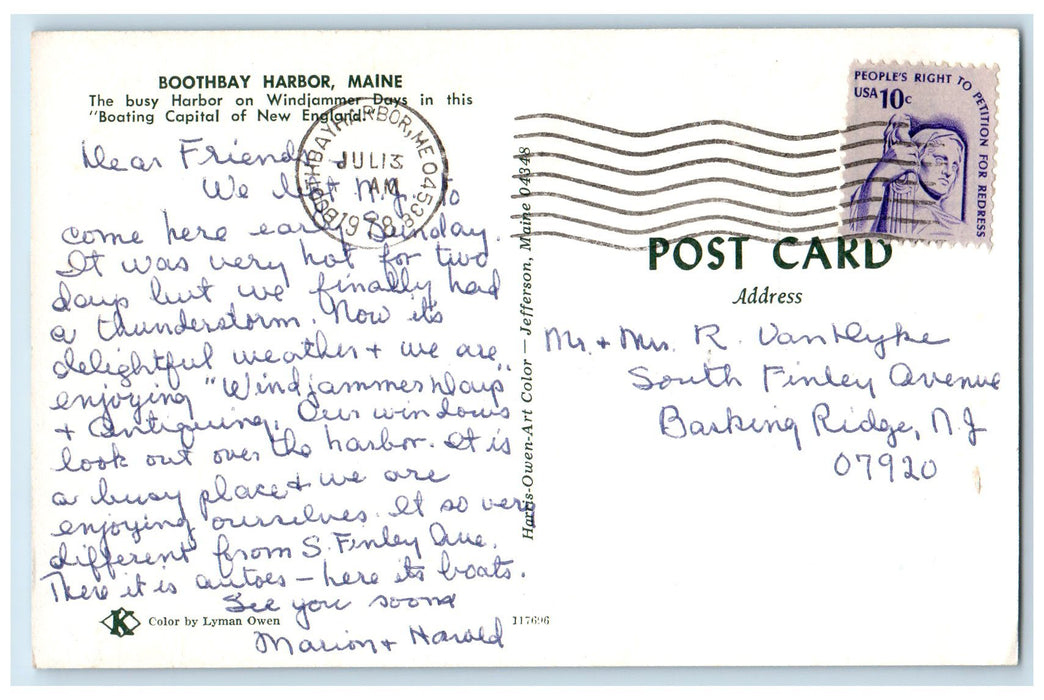 BOOTHBAY HARBOR, MAINE
The busy Harbor on Windjammer Days in this
"Boating Capital of New England."
Dear Friends
We left N.J. to
come here early Sunday.
It was very hot for two
days but we finally had
a thunderstorm. Now its
delightful weather + we are
enjoying "Windjammer Days"
+ Antiquing. Our windows
look out over the harbor. It is
a busy place + we are
enjoying ourselves. It so very
different from S. Finley Ave.
There it is autoes – here its boats.
See you soon
Marion + Harold
K Color by Lyman Owen
117696
Harris-Owen-Art Color — Jefferson, Maine 04348
BOOTHBAY HARBOR, ME 04538
JUL 13
AM
1978
PEOPLE'S RIGHT TO PETITION FOR REDRESS
USA 10c
POST CARD
Address
Mr. + Mrs. R. VanDyke
South Finley Avenue
Basking Ridge, N.J
07920